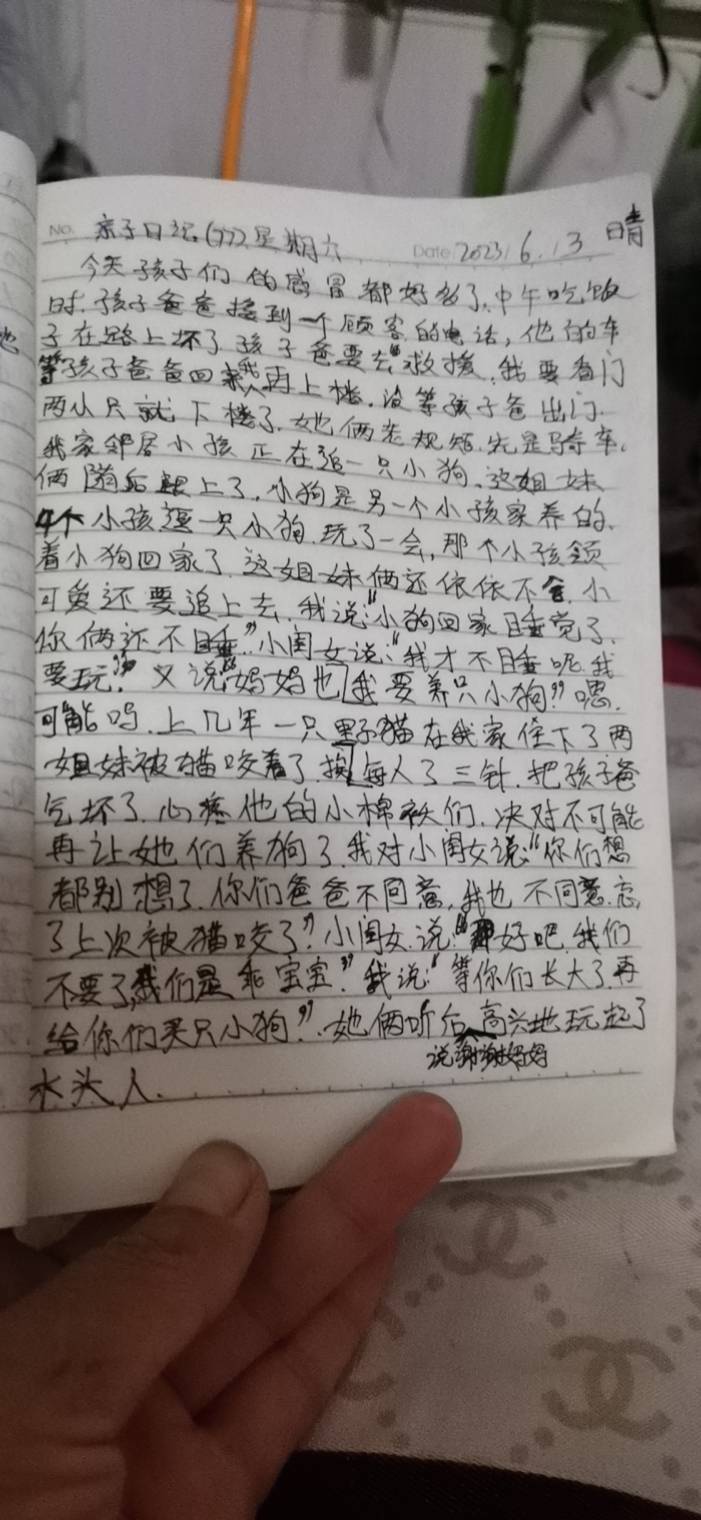 No. 亲子日记(77)星期六 Date 2023/6/3 晴
今天孩子们的感冒都好多了,中午吃饭
时.孩子爸爸接到一个顾客的电话,他的车
子在路上坏了.孩子爸要去"救援.我要看门
等孩子爸爸回来我再上楼.没等孩子爸出门.
两小只就下楼了.她俩老规矩.先是骑车.
我家邻居小孩正在追一只小狗.这姐妹
俩随后跟上了.小狗是另一个小孩家养的.
4个小孩逗一只小狗.玩了一会,那个小孩领
着小狗回家了.这姐妹俩还依依不舍.小
可爱还要追上去.我说:"小狗回家睡觉了.
你俩还不睡."小闺女说:"我才不睡呢.我
要玩."又说"妈妈也我要养只小狗"嗯.
可能吗.上几年一只野猫在我家住下了两
姐妹被猫咬着了.挨每人了三针.把孩子爸
气坏了.心疼他的小棉袄们.决对不可能
再让她们养狗了.我对小闺女说:"你们想
都别想了.你们爸爸不同意,我也不同意.忘
了上次被猫咬了"小闺女.说"好吧.我们
不要了,我们是乖宝宝."我说:"等你们长大了.再
给你们买只小狗".她俩听后高兴地玩起了
说谢谢妈妈
木头人.